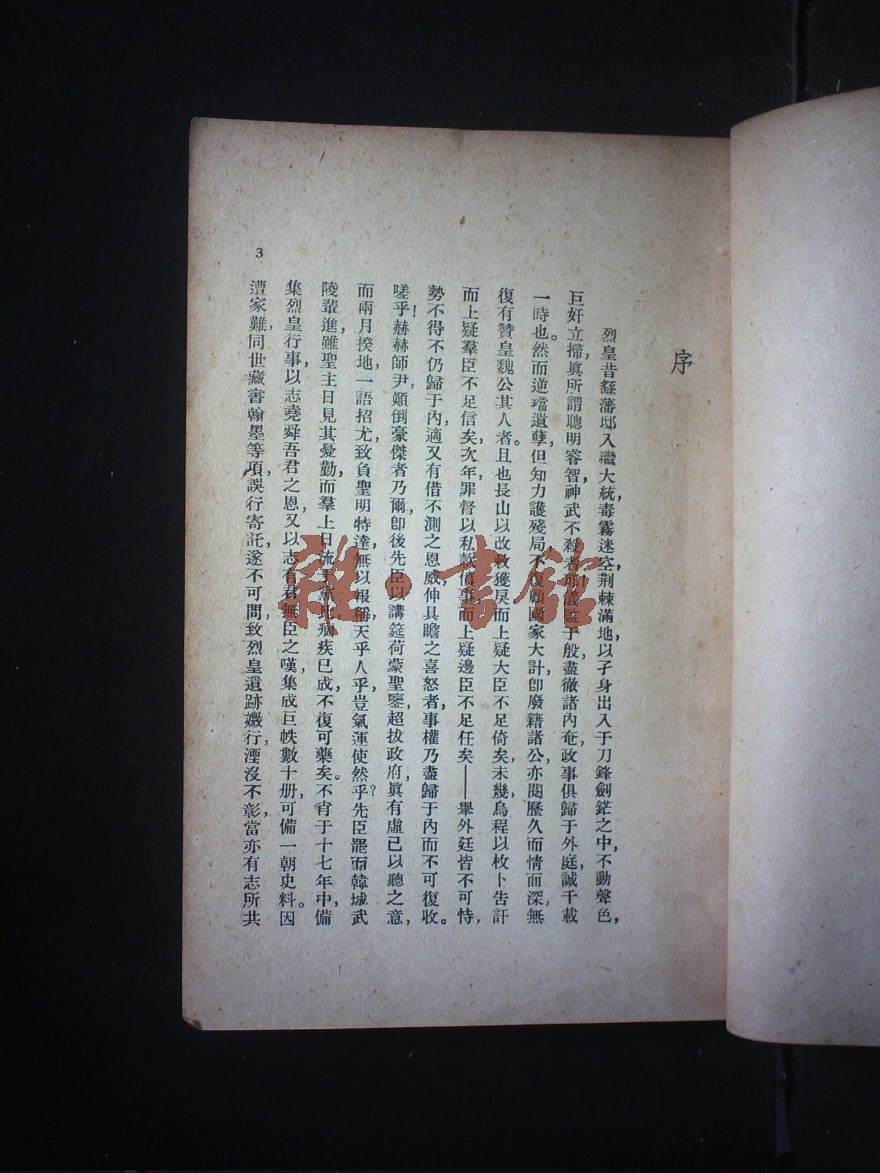 序
烈皇昔繇藩邸入繼大統，毒霧迷空，荆棘滿地，以孑身出入于刀鋒劍鋩之中，不動聲色，
巨奸立掃，眞所謂聰明睿智神武不殺者耶！
于殷盡徹諸內奄，政事俱歸于外庭，誠千載
一時也。然而逆璫遺孽，但知力護殘局，不復顧國家大計，卽廢籍諸公，亦閱歷久而情面深，無
復有贊皇魏公其人者。且也長山以改敕獲戾，而上疑大臣不足倚矣，未幾烏程以枚卜告訐，
而上疑羣臣不足信矣，次年罪督以私款僨事，而上疑邊臣不足任矣——舉外廷皆不可恃，
勢不得不仍歸于內，適又有借不測之恩威，伸具瞻之喜怒者，事權乃盡歸于內而不可復收。
嗟乎！赫赫師尹，顚倒豪傑者乃爾，卽後先臣以講筵荷蒙聖鑒，超拔政府，眞有虛已以聽之意，
而兩月揆地，一語招尤，致負聖明特達，無以報稱，天乎人乎，豈氣運使然乎？先臣罷而韓城武
陵輩進，雖聖主日見其憂勤，而羣上日流
病疾已成，不復可藥矣。不肖于十七年中，備
集烈皇行事，以志堯舜吾君之恩，又以志有君無臣之嘆，集成巨帙數十册，可備一朝史料。因
遭家難，同世藏書翰墨等項，誤行寄託，遂不可問，致烈皇遺跡嫐行，湮沒不彰，當亦有志所共
3
雜·書館